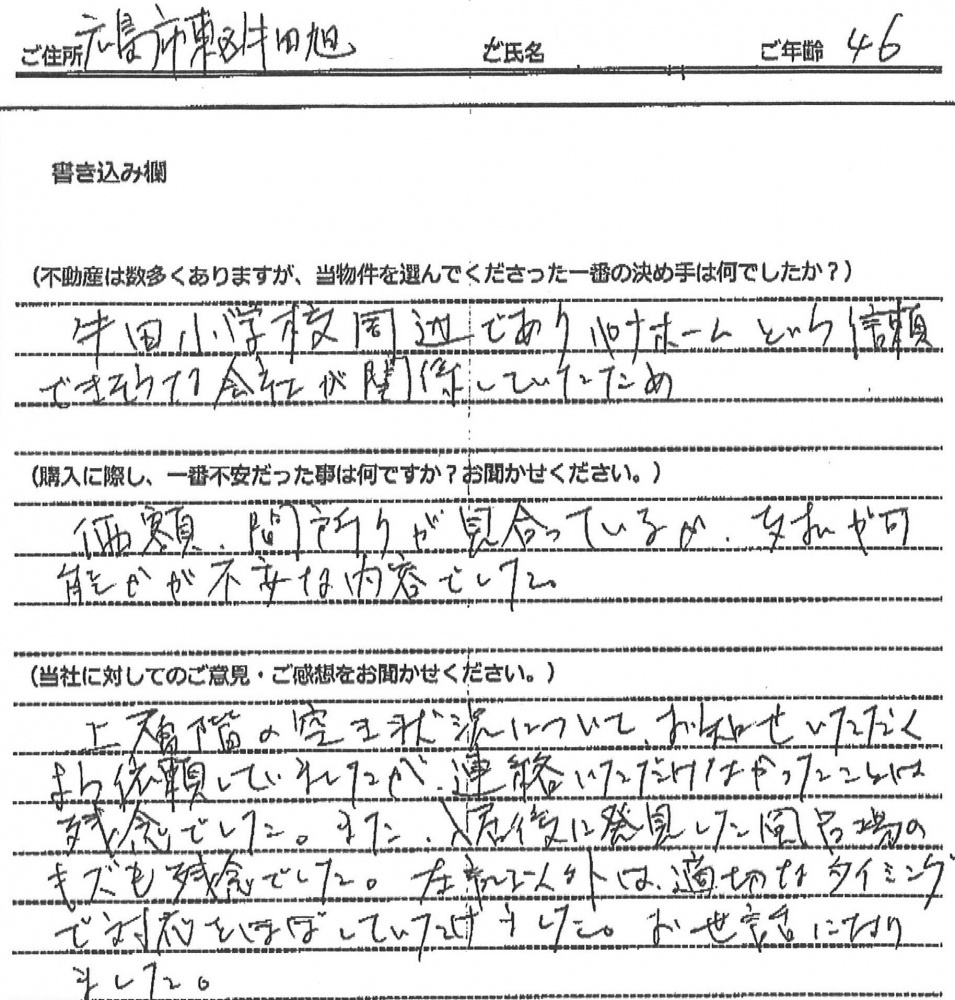 ご住所 広島市東区牛田旭 ご氏名 ご年齢 46
書き込み欄
(不動産は数多くありますが、当物件を選んでくださった一番の決め手は何でしたか?)
牛田小学校周辺であり ホームという信頼
できそうな会社が関係していたため
(購入に際し、一番不安だった事は何ですか?お聞かせください。)
価額、間所りが見合っているか、支払が可
能かが不安な内容でした。
(当社に対してのご意見・ご感想をお聞かせください。)
上層階の空き状況について、お知せいただく
よう依頼していましたが、連絡いただけなかったことは
残念でした。また、入居後に発見した風呂場の
キズも残念でした。 以外は、適切なタイミング
で対応をほぼしていただけました。お世話になり
ました。